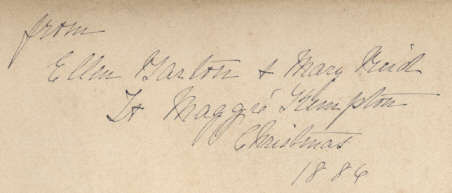 from
Ellen Garton & Mary Reid
To Maggie Kempton
Christmas
1886